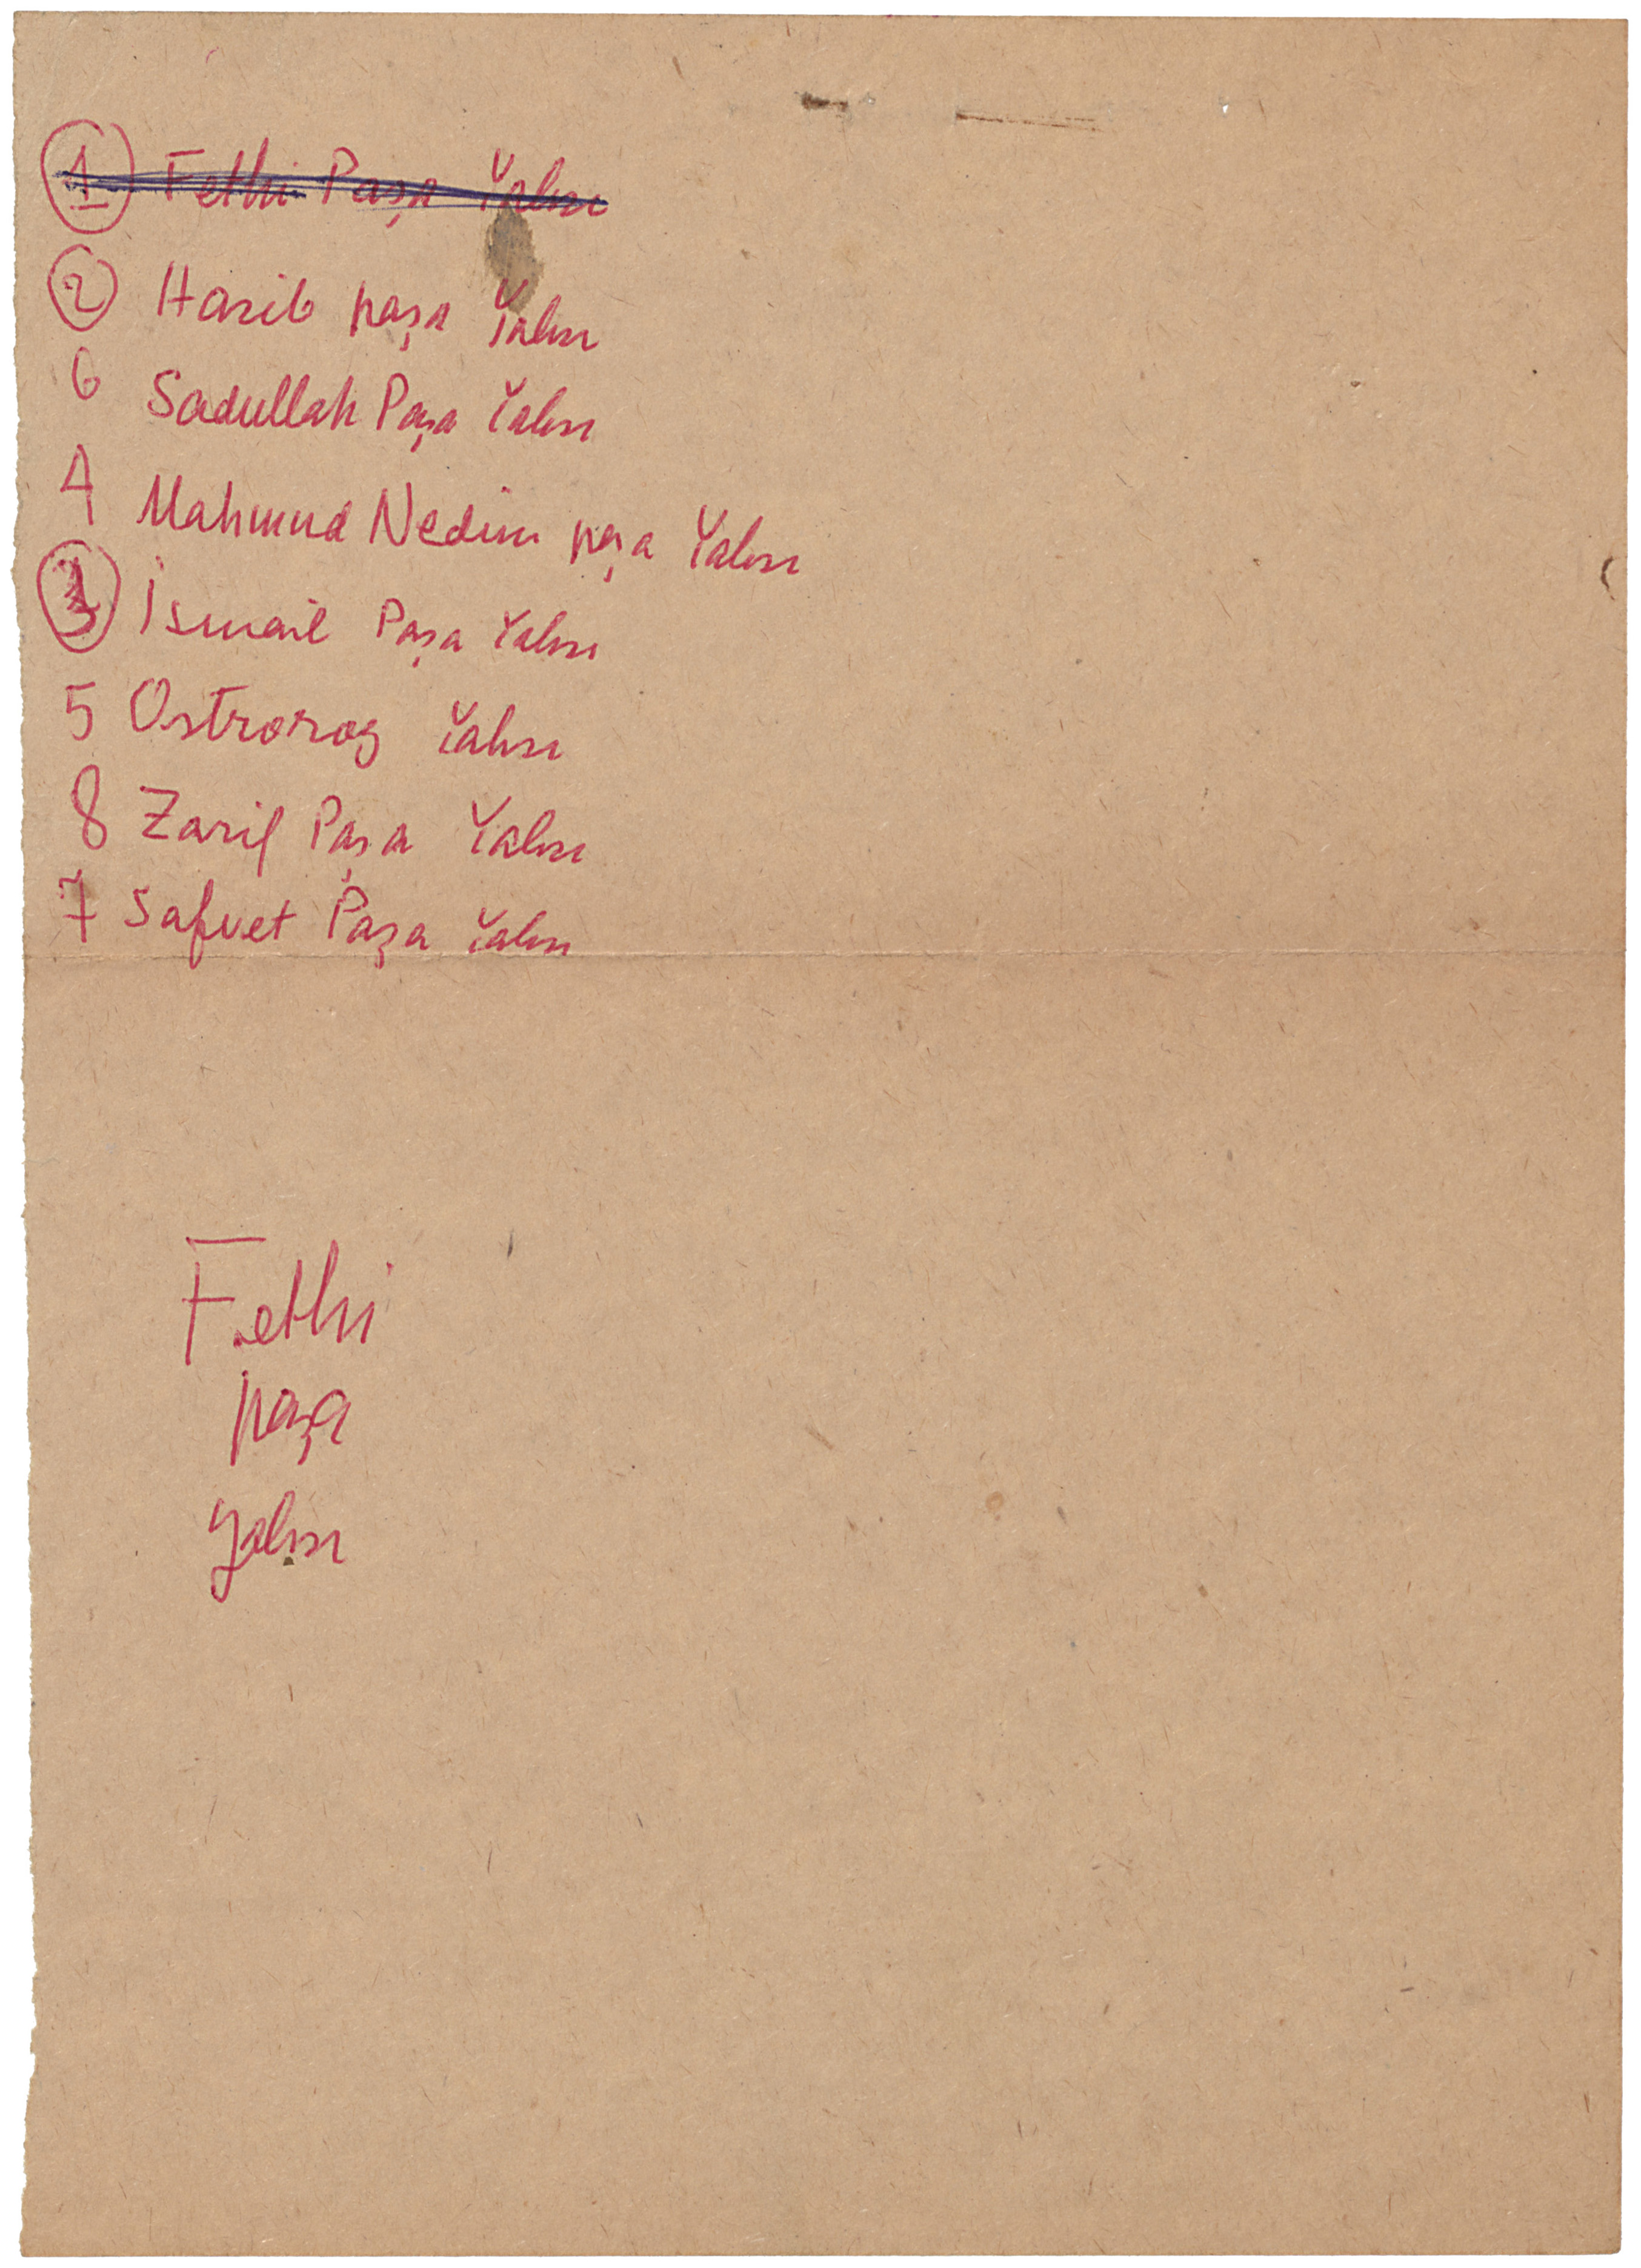 1 Fethi Paşa Yalısı
2 Hasib paşa Yalısı
6 Sadullah Paşa Yalısı
4 Mahmud Nedim paşa Yalısı
3 İsmail Paşa Yalısı
5 Ostrorog Yalısı
8 Zarif Paşa Yalısı
7 Safvet Paşa Yalısı
Fethi
paşa
yalısı